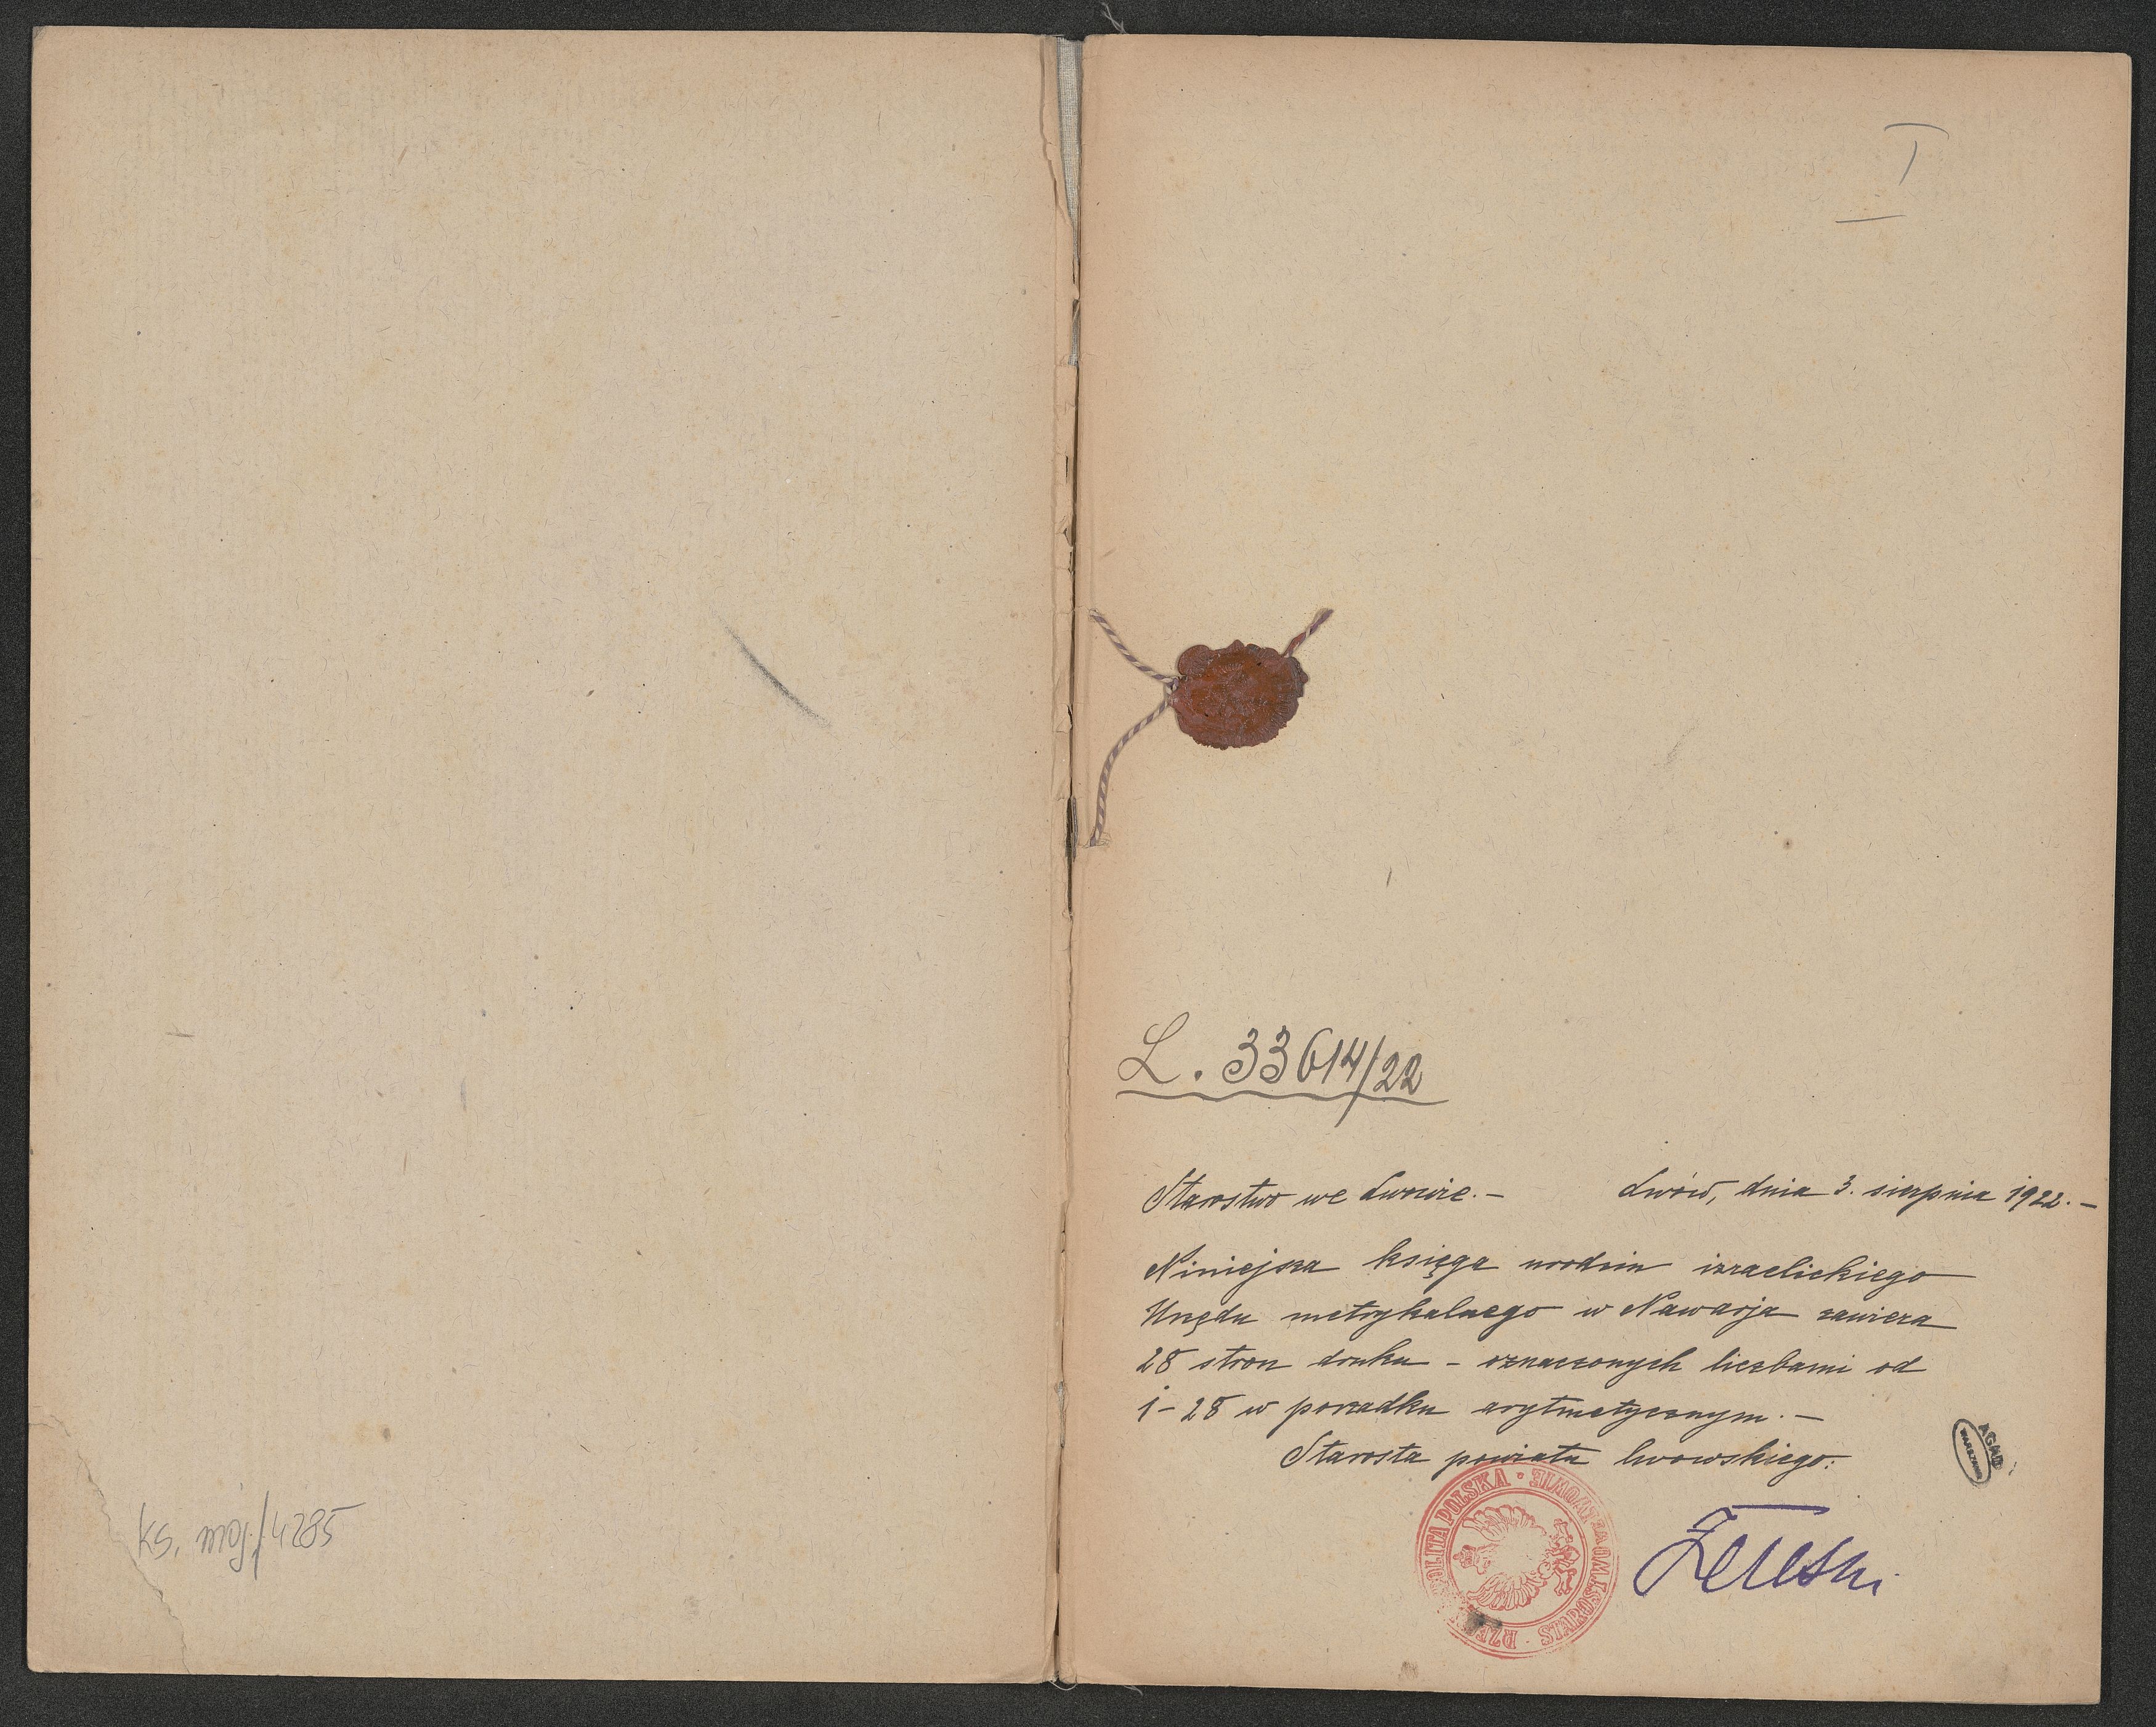 I
L. 33614/22
Starostwo we Lwowie. – Lwów, dnia 3. sierpnia 1922. –
Niniejsza księga urodzin izraelickiego
Urzędu metrykalnego w Nawarja zawiera
28 stron druku – oznaczonych liczbami od
1 – 28 w porządku arytmetycznym. –
Starosta powiatu lwowskiego:
RZECZPOSPOLITA POLSKA · STAROSTWO WE LWOWIE
AGAD
WARSZAWA
ks. moj./4285